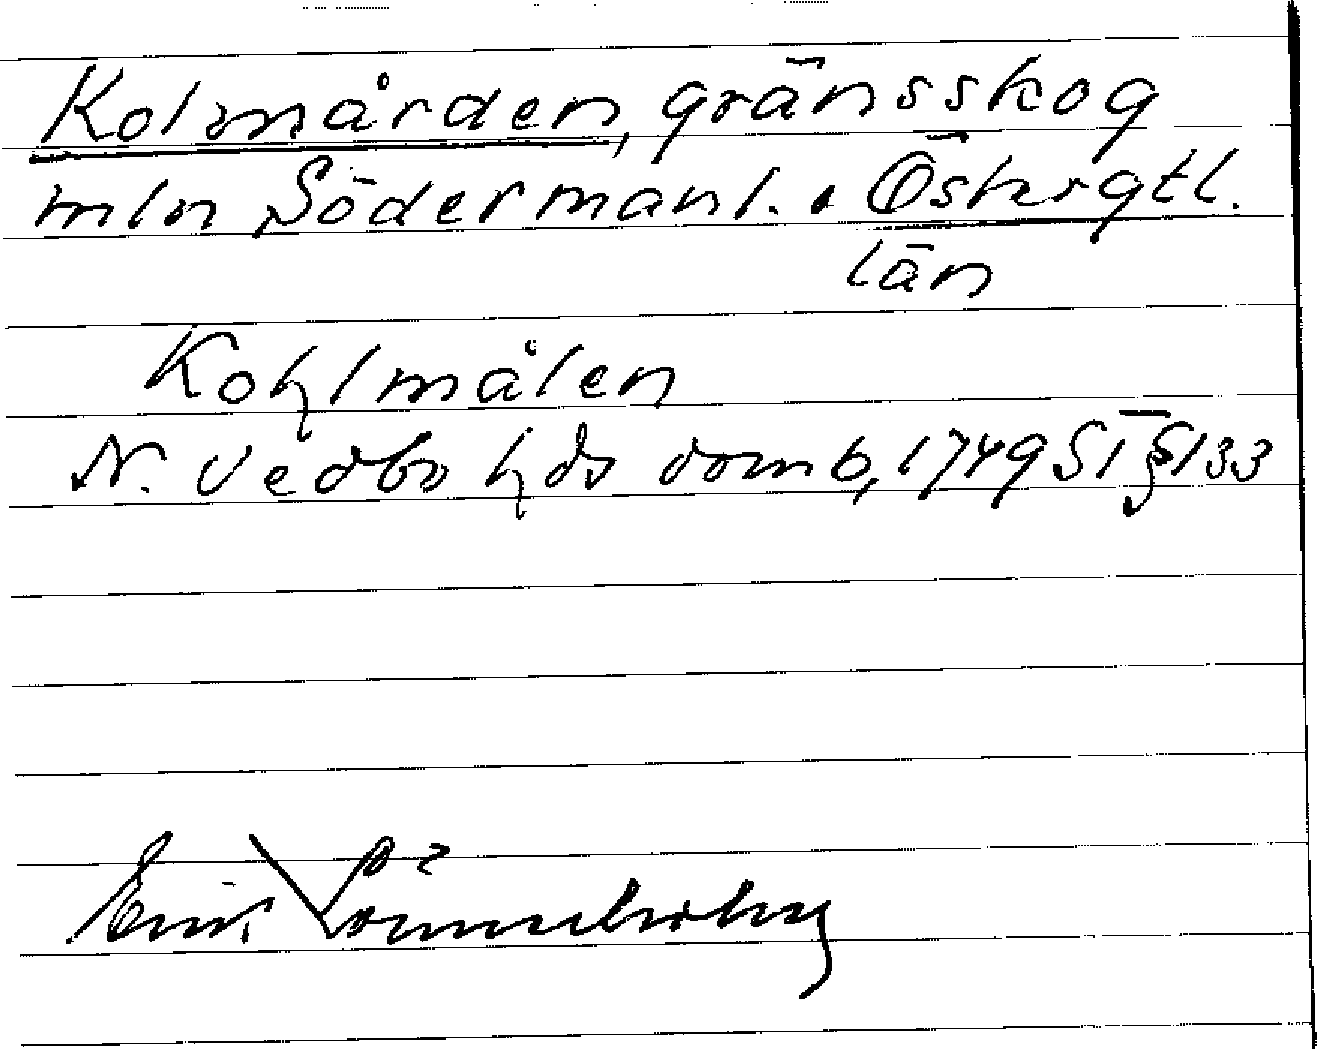 Kolmården, gränsskog
mln Södermanl. o Östergtl.
län
Kohlmålen
N. Vedbo hds domb, 1749 S I § 133
Erik Lönnerholm